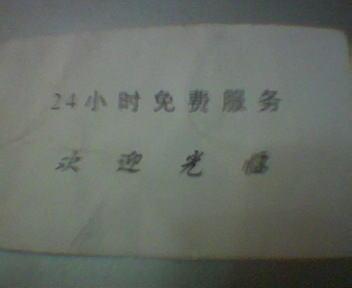 24小时免费服务
欢迎光临